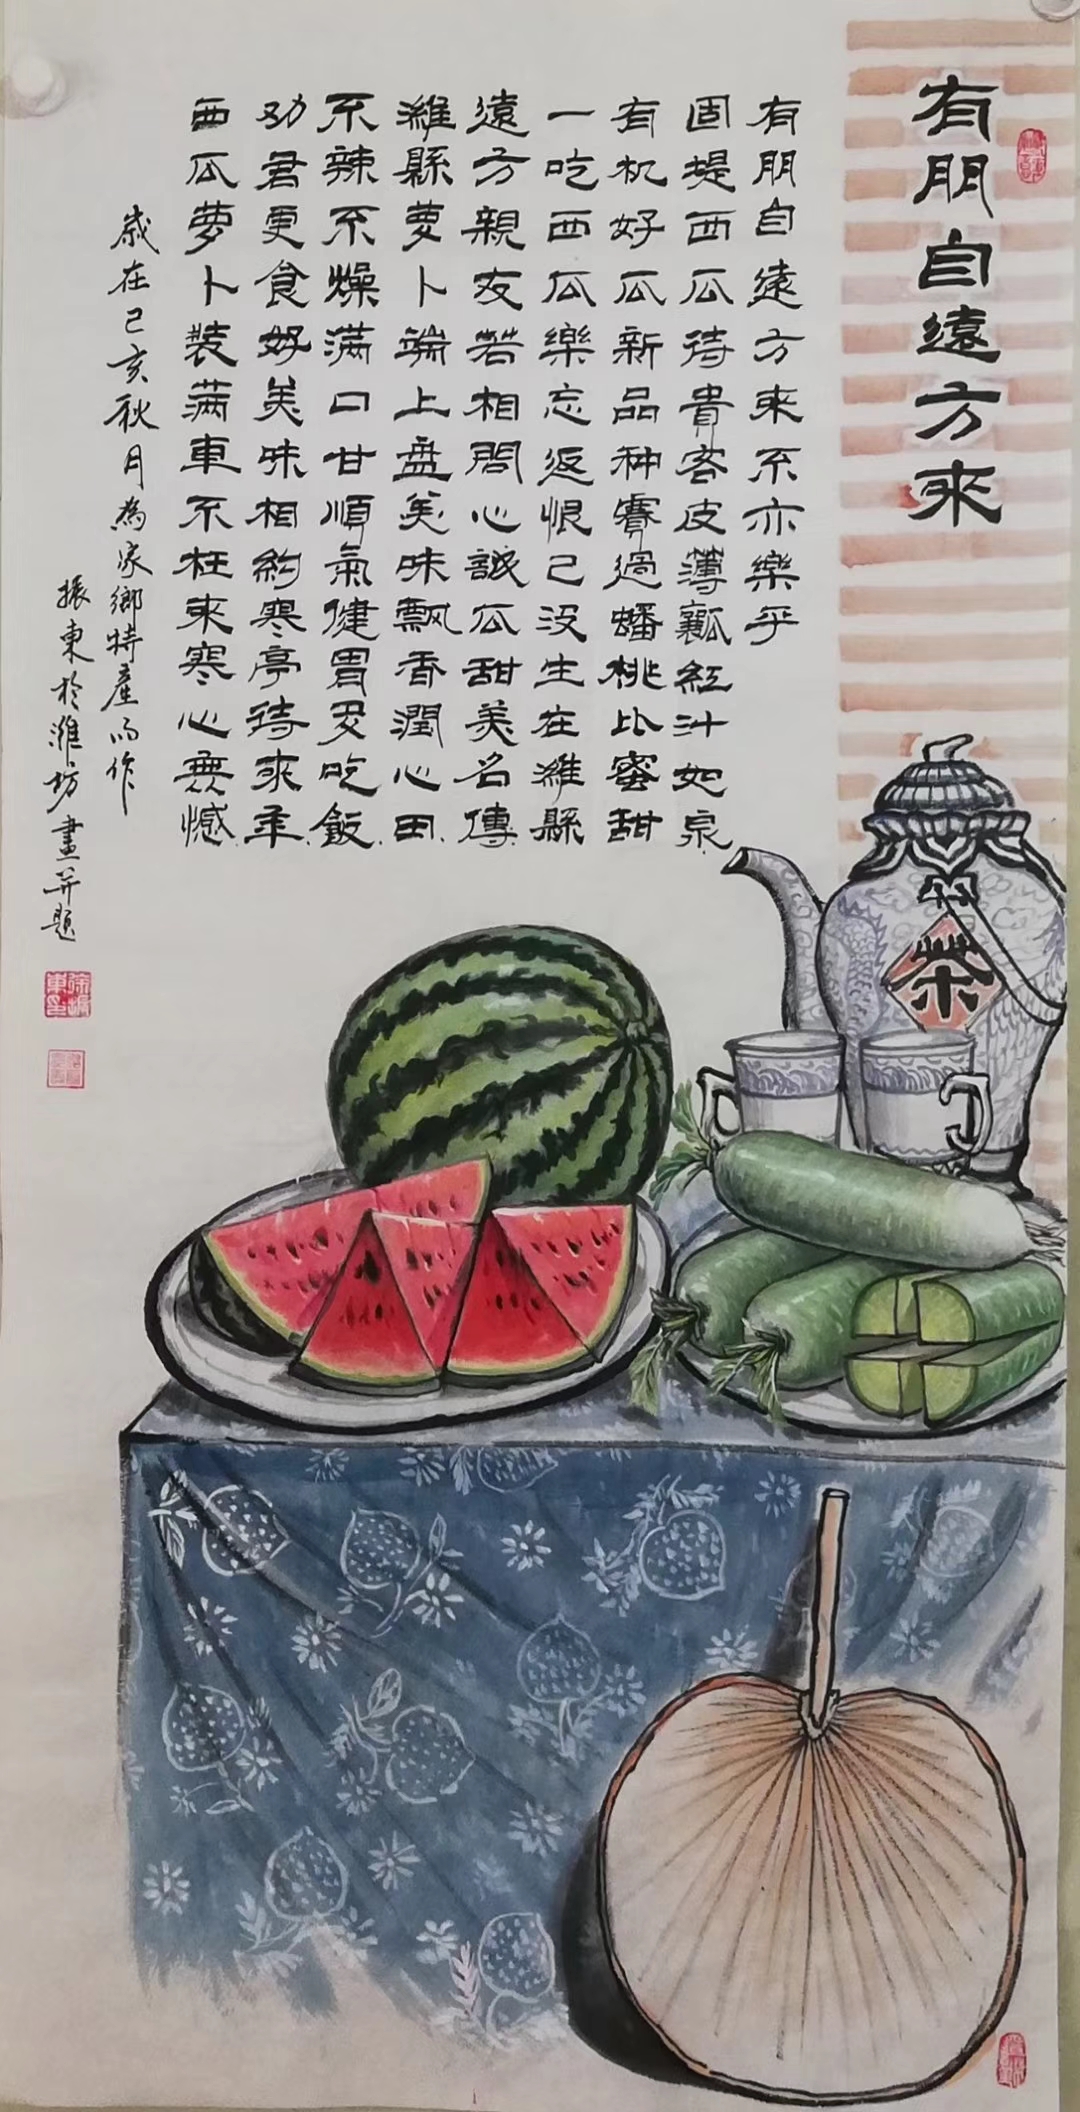 有朋自遠方來
有朋自遠方來不亦樂乎
固堤西瓜待貴客皮薄瓤紅汁如泉
有机好瓜新品种賽過蟠桃比蜜甜
一吃西瓜樂忘返恨己没生在濰縣
遠方親友若相問心誠瓜甜美名傳
濰縣萝卜端上盘美味飘香潤心田
不辣不燥满口甘順氣健胃又吃飯
劝君更食好美味相約寒亭待來年
西瓜萝卜装满車不枉來寒心無憾
歲在己亥秋月為家鄉特產而作
振東於濰坊畫并題
茶